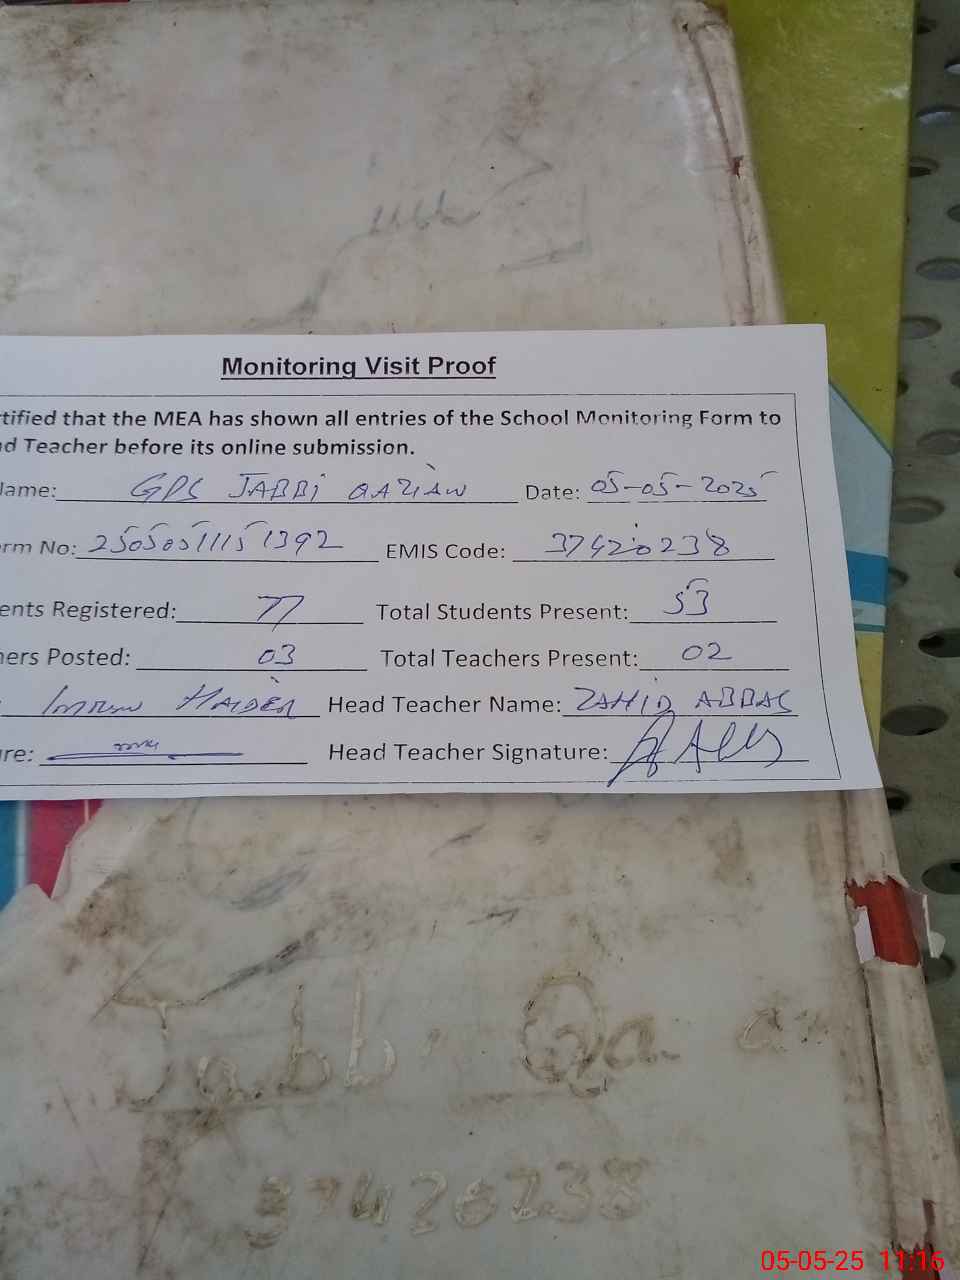 Monitoring Visit Proof
rtified that the MEA has shown all entries of the School Monitoring Form to
ad Teacher before its online submission.
Name: GPS JABBI QAZIAN Date: 05-05-2025
orm No: 25050511151392 EMIS Code: 37420238
ents Registered: 77 Total Students Present: 53
hers Posted: 03 Total Teachers Present: 02
IMRAN HAIDER Head Teacher Name: ZAHID ABBAS
ure: Head Teacher Signature:
Jabbi Qa
37420238
05-05-25 11:16